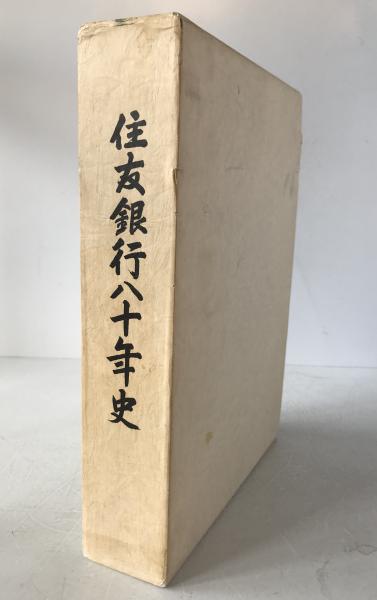 住友銀行八十年史